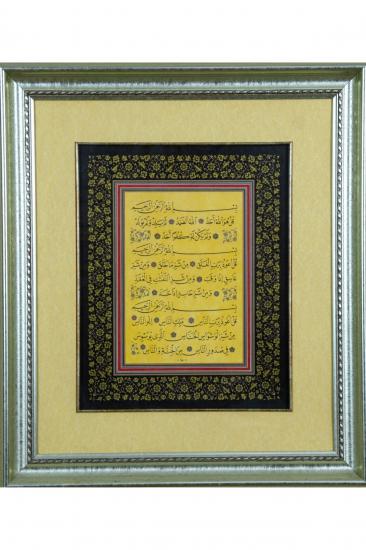 بِسْمِ اللَّهِ الرَّحْمَنِ الرَّحِيمِ
قُلْ هُوَ اللَّهُ أَحَدٌ اللَّهُ الصَّمَدُ لَمْ يَلِدْ وَلَمْ يُولَدْ
وَلَمْ يَكُنْ لَهُ كُفُوًا أَحَدٌ
بِسْمِ اللَّهِ الرَّحْمَنِ الرَّحِيمِ
قُلْ أَعُوذُ بِرَبِّ الْفَلَقِ مِنْ شَرِّ مَا خَلَقَ وَمِنْ شَرِّ
غَاسِقٍ إِذَا وَقَبَ وَمِنْ شَرِّ النَّفَّاثَاتِ فِي الْعُقَدِ
وَمِنْ شَرِّ حَاسِدٍ إِذَا حَسَدَ
بِسْمِ اللَّهِ الرَّحْمَنِ الرَّحِيمِ
قُلْ أَعُوذُ بِرَبِّ النَّاسِ مَلِكِ النَّاسِ إِلَهِ النَّاسِ
مِنْ شَرِّ الْوَسْوَاسِ الْخَنَّاسِ الَّذِي يُوَسْوِسُ
فِي صُدُورِ النَّاسِ مِنَ الْجِنَّةِ وَالنَّاسِ